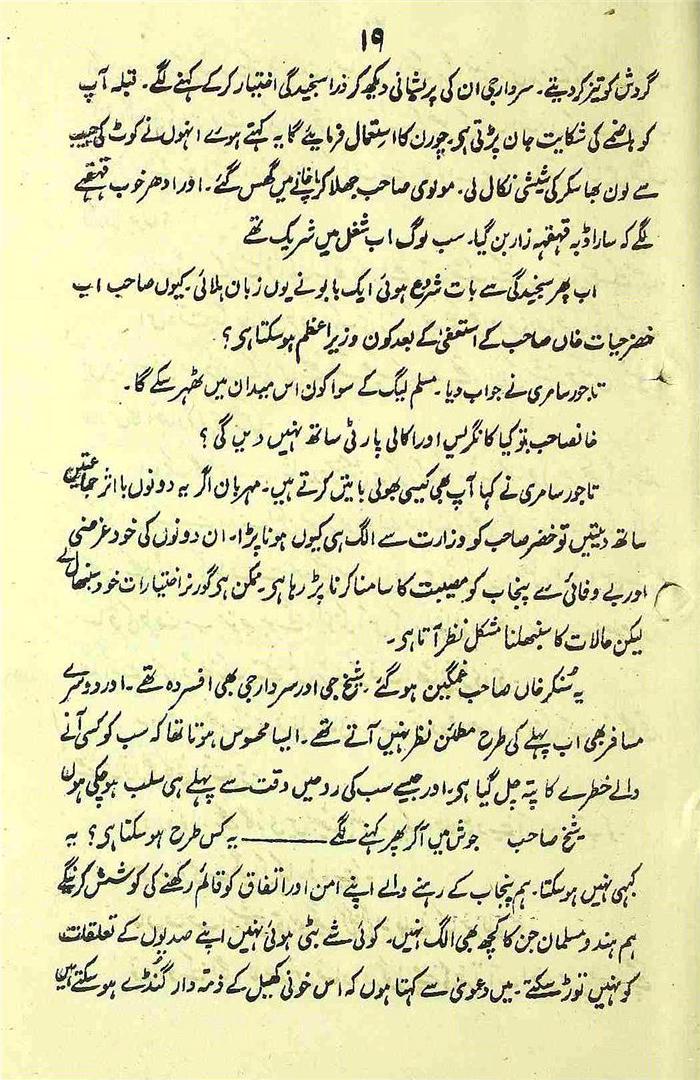 ۱۹
گردش کو تیز کر دیتے۔ سردار جی ان کی پریشانی دیکھ کر ذرا سنجیدگی اختیار کر کے کہنے لگے۔ قبلہ آپ
کو ہاضمے کی شکایت جان پڑتی ہی۔ چورن کا استعمال فرمایئے گا یہ کہتے ہوے انہوں نے کوٹ کی جیب
سے لون بھاسکر کی شیشی نکال لی۔ مولوی صاحب جھلا کر پاخانے میں گھس گئے۔ اور ادھر خوب قہقہے
لگے کہ سارا ڈبہ قہقہہ زار بن گیا۔ سب لوگ اب شغل میں شریک تھے
اب پھر سنجیدگی سے بات شروع ہوئی ایک بابو نے یوں زبان ہلائی۔ کیوں صاحب اب
خضر حیات خاں صاحب کے استعفیٰ کے بعد کون وزیر اعظم ہو سکتا ہی؟
تاجور سامری نے جواب دیا۔ مسلم لیگ کے سوا کون اس میدان میں ٹھہر سکے گا۔
خانصاحب تو کیا کانگرس اور اکالی پارٹی ساتھ نہیں دیں گی؟
تاجور سامری نے کہا آپ بھی کیسی بھولی باتیں کرتے ہیں۔ مہربان اگر یہ دونوں با اثر جماعتیں
ساتھ دیتیں تو خضر صاحب کو وزارت سے الگ ہی کیوں ہونا پڑا۔ ان دونوں کی خود غرضی
اور بے وفائی سے پنجاب کو مصیبت کا سامنا کرنا پڑ رہا ہی۔ ممکن ہی گورنر اختیارات خود سنبھال لے
لیکن حالات کا سنبھلنا مشکل نظر آتا ہی۔
یہ سُنکر خاں صاحب غمگین ہو گئے۔ شیخ جی اور سردار جی بھی افسردہ تھے۔ اور دوسرے
مسافر بھی اب پہلے کی طرح مطمئن نظر نہیں آتے تھے۔ ایسا محسوس ہوتا تھا کہ سب کو کسی آنے
والے خطرے کا پتہ چل گیا ہی۔ اور جیسے سب کی ردمیں وقت سے پہلے ہی سلب ہو چکی ہوں
شیخ صاحب جوش میں آکر پھر کہنے لگے ——— یہ کس طرح ہو سکتا ہی؟ یہ
کبہی نہیں ہو سکتا۔ ہم پنجاب کے رہنے والے اپنے امن اور اتفاق کو قائم رکھنے کی کوشش کرینگے
ہم ہندو مسلمان جن کا کچھ بھی الگ نہیں۔ کوئی شے بٹی ہوئی نہیں اپنے صدیوں کے تعلقات
کو نہیں توڑ سکتے۔ میں دعویٰ سے کہتا ہوں کہ اس خونی کھیل کے ذمہ دار گنڈے ہو سکتے ہیں